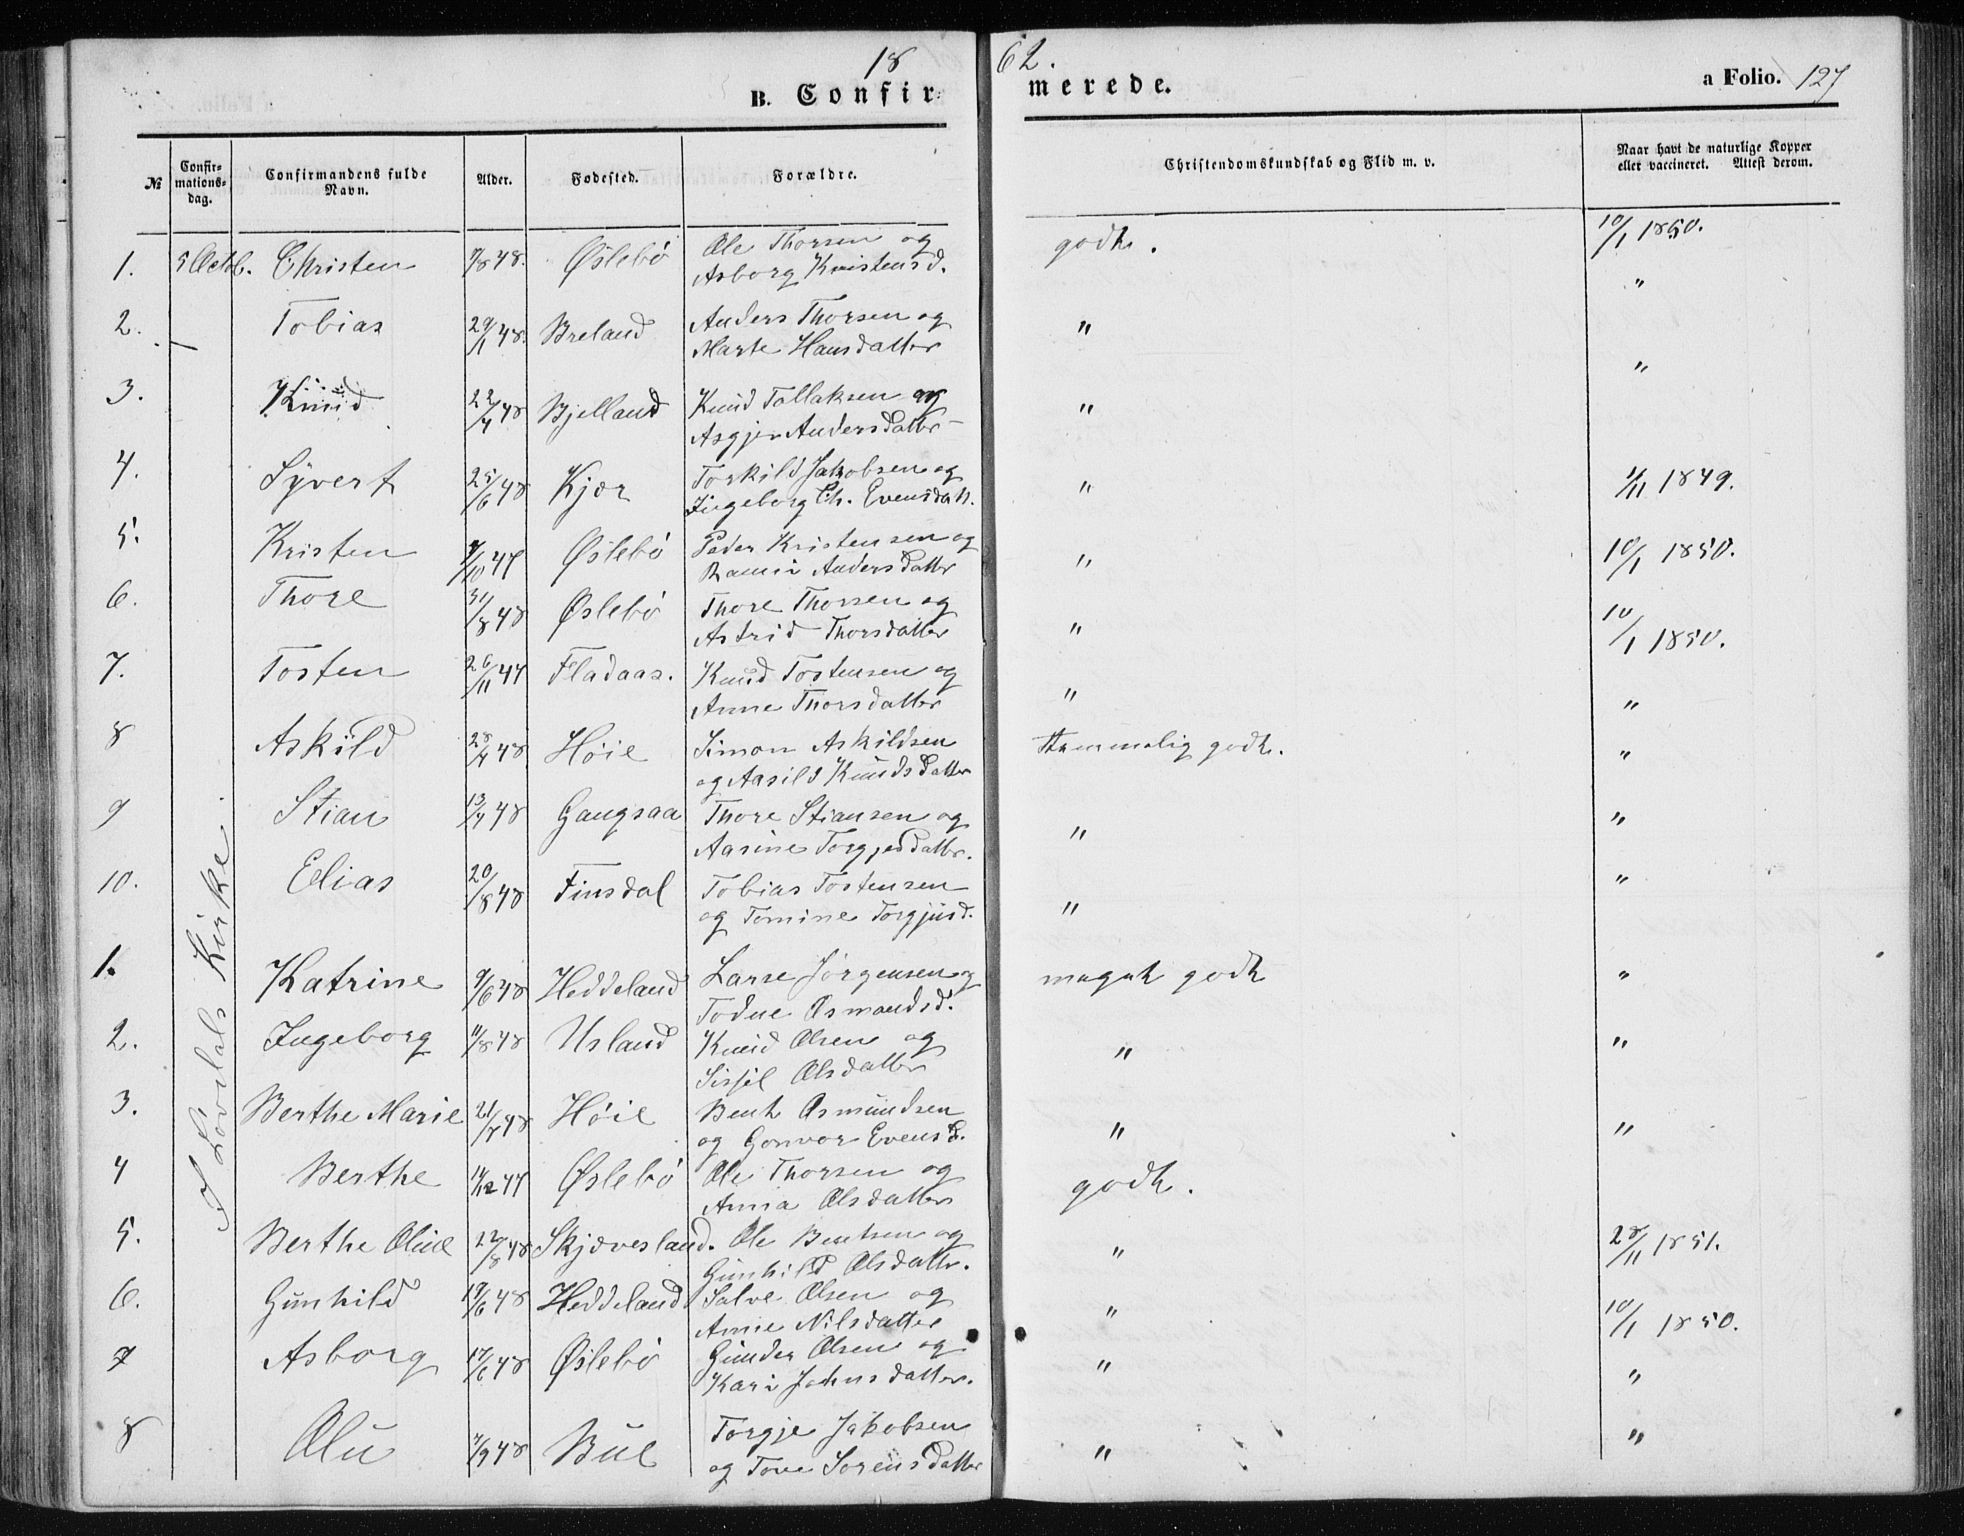 18 62.
B. Confir= merede. a Folio. 127
№ Confir-mations-dag. Confirmandens fulde Navn. Alder. Fødested. Forældre. Christendomskundskab og Flid m. v. Naar havt de naturlige Kopper eller vaccineret. Attest derom.
1. 5 Octb. Christen 48. Øslebø Ole Thorsen og godt. 10/1 1850.
Asborg Kristensd.
2. Tobias 29/1 48. Breland Anders Thorsen og " "
Marte Hansdatter
3. Knud 22/4 48 Bjelland Knud Tallaksen og " "
Asgjer Andersdatter
4. Syvert 25/6 48 Kjær Torkild Jakobsen og " 1/11 1849.
Ingeborg Ch. Evensdatt.
5. Kristen /10 47 Øslebø Peder Kristensen og " 10/1 1850.
Andersdatter
6. Thore 31/8 48 Øslebø Thore Thorsen og " 10/1 1850.
Astrid Thorsdatter
7. Tosten 26/11 47 Fladaas. Knud Tostensen og " "
Anne Thorsdatter
8 Askild 28/4 48 Høie Simon Askildsen temmelig godt. "
og Aasild Knudsdatter
9 Stian 13/4 48 Gaugsaa Thore Stiansen og " "
Aasine Torgjesdatter.
10. Elias 20/8 48 Finsdal Tobias Tostensen " "
og Tomine Torgjusd.
I Løvdals Kirke.
1. Katrine 9/6 48 Heddeland Larse Jørgensen og meget godt "
Todne Osmondsd.
2. Ingeborg 11/8 48 Usland Knud Olsen og " "
Sissel Olsdatter
3. Berthe Marie 21/7 48 Høie Bent Osmundsen " "
og Gonvor Evensd.
4 Berthe 14/12 47 Øslebø Ole Thorsen og godt.
Anna Olsdatter
5. Berthe Oline 22/8 48 Skjævesland. Ole Bentsen og " 28/11 1851.
Gunhild Olsdatter.
6. Gunhild 19/6 48 Heddeland Salve Olsen og " 10/1 1850.
Anne Nilsdatter
7 Asborg 17/6 48 Øslebø Gunder Olsen og " "
Kari Johnsdatter.
8 Olu 7/9 48 Bue Torgje Jakobsen " "
og Tove Sorensdatter